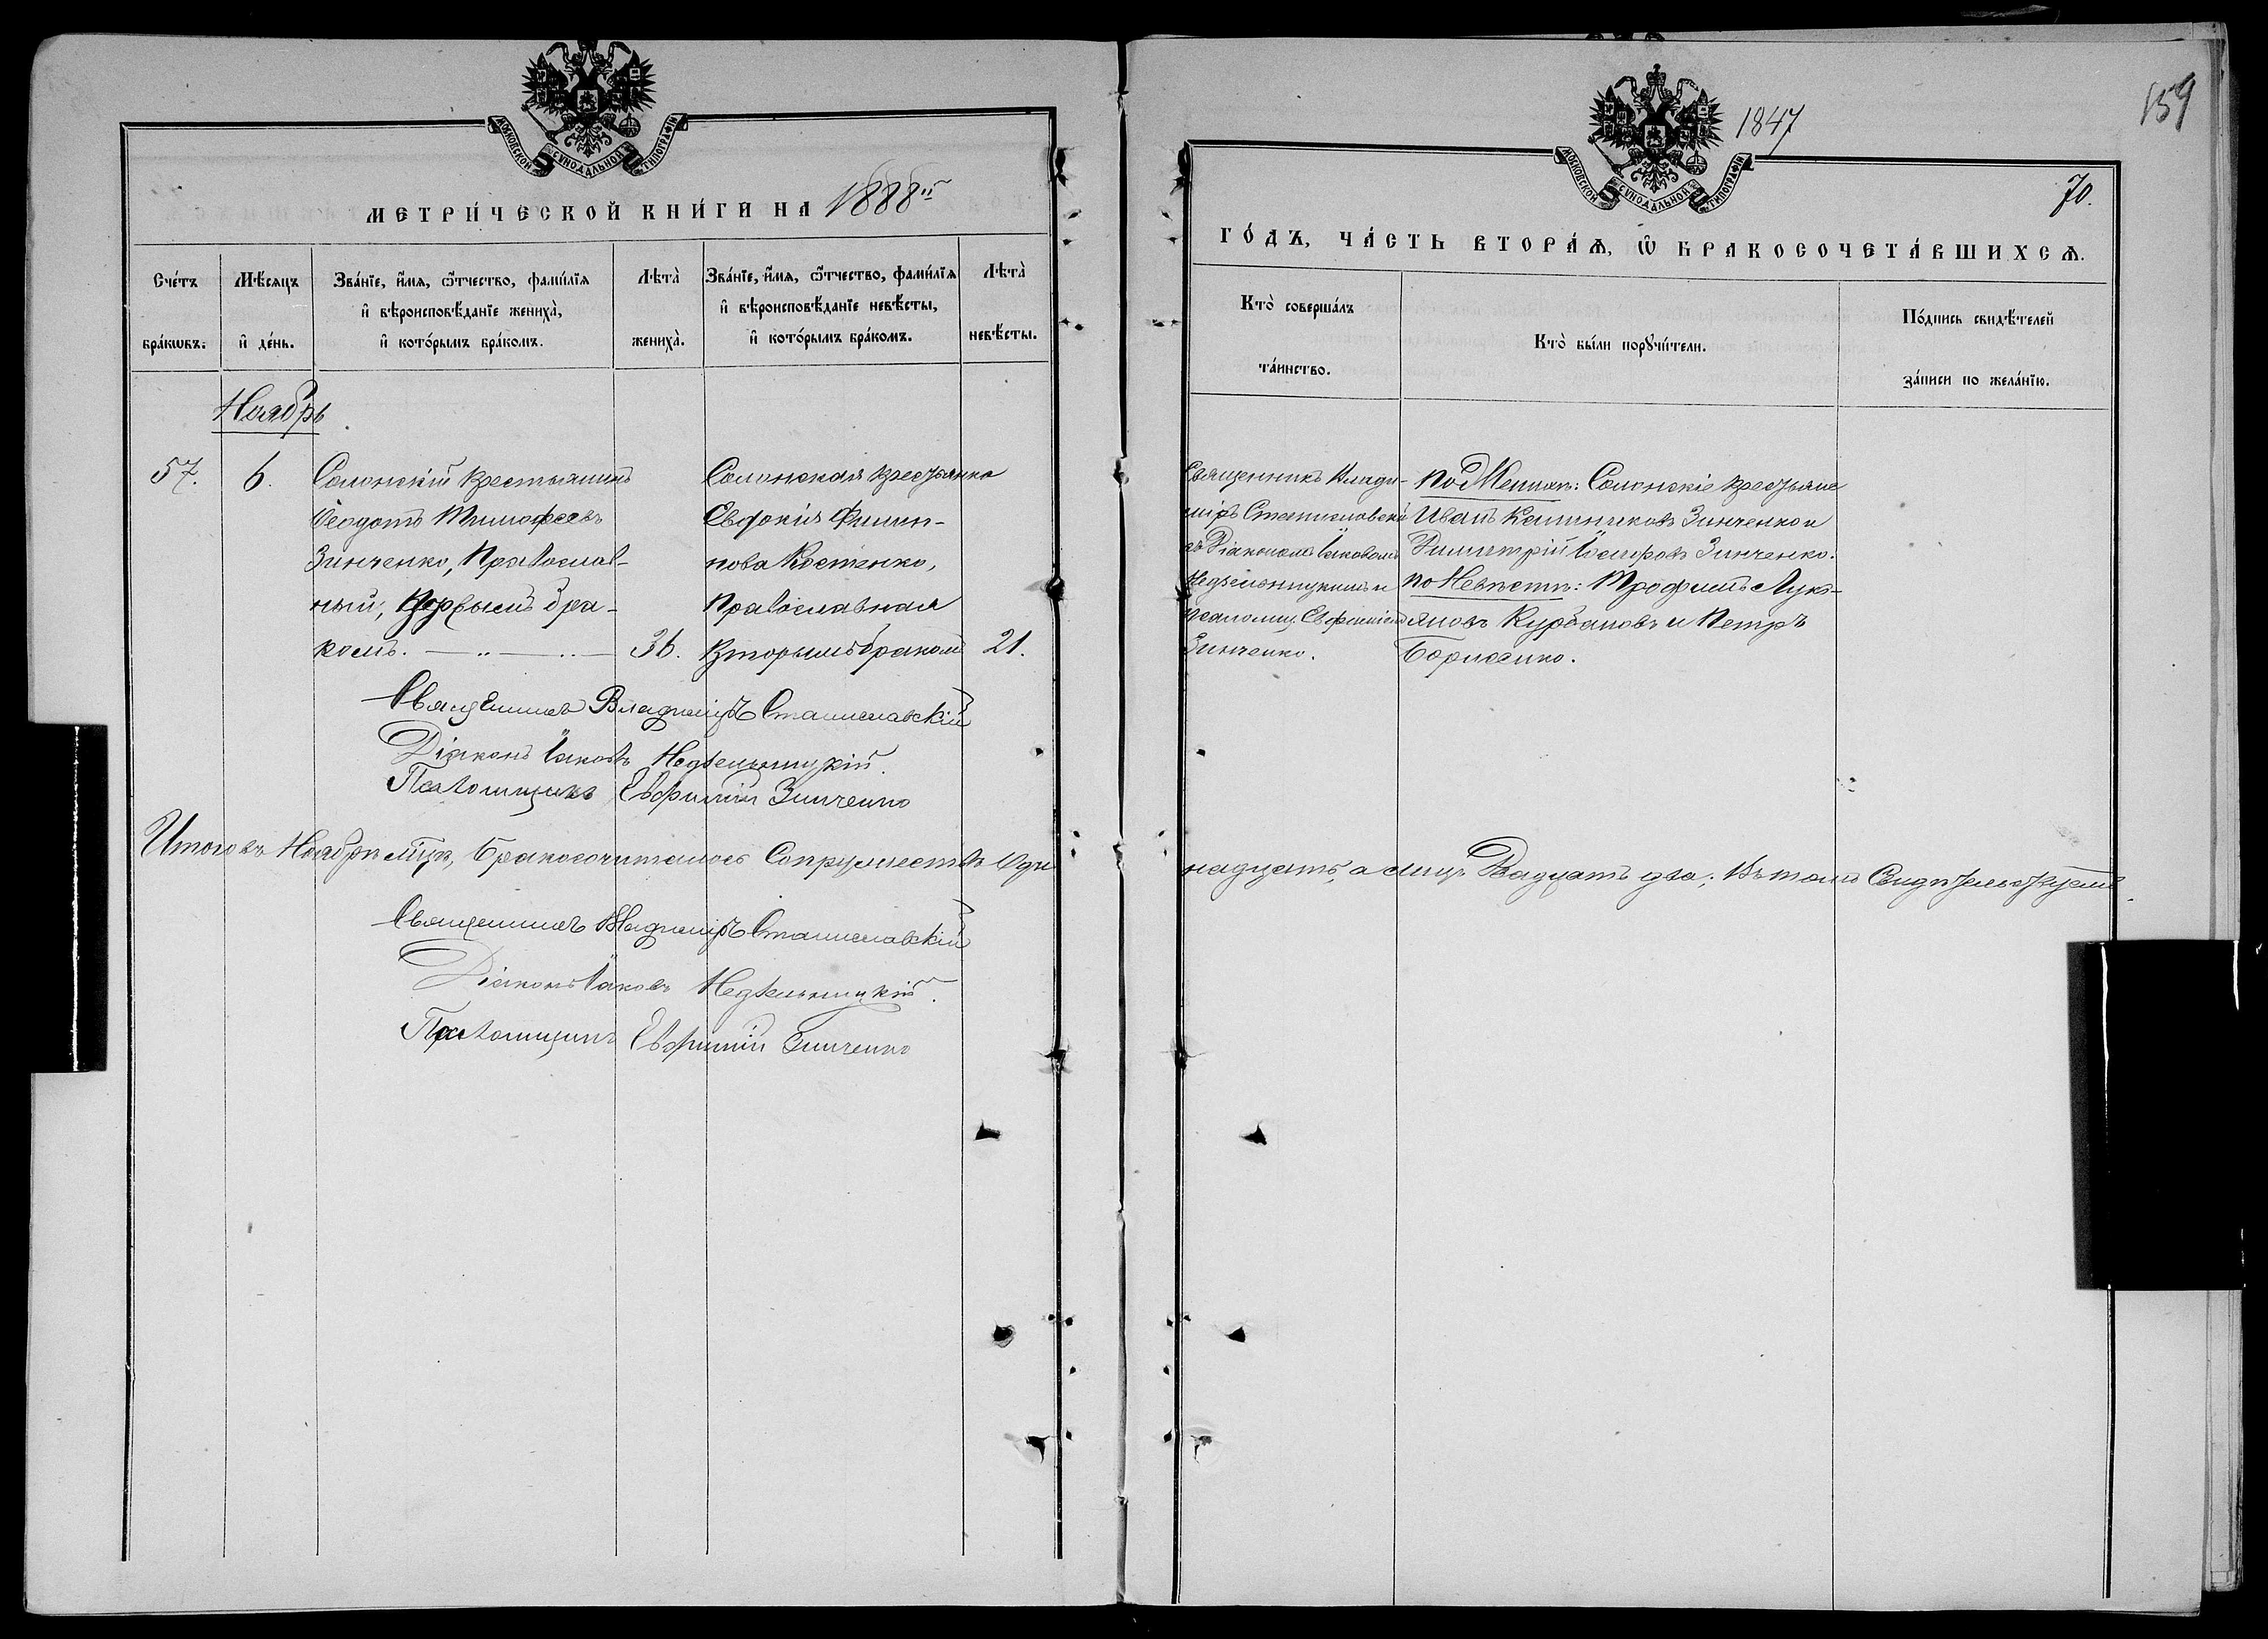 МОСКОВСКОЙ СѴНОДАЛЬНОЙ ТИПОГРАФІИ
МЕТРИ́ЧЕСКОЙ КНИ́ГИ НА 1888й
Сче́тъ бра́кѡвъ.
Мѣ́сяцъ и҆ де́нь.
Зва́нїе, и҆́мя, ѻ҆́тчество, фами́лїя
и҆ вѣроисповѣ́данїе жениха̀,
и҆ кото́рымъ бра́комъ.
Лѣта̀ жениха̀.
Зва́нїе, и҆́мя, ѻ҆́тчество, фами́лїя
и҆ вѣроисповѣ́данїе невѣ́сты,
и҆ кото́рымъ бра́комъ.
Лѣта̀ невѣ́сты.
Ноябрь
57.
6.
Солонскій крестьянинъ
Ѳеодотъ Тимофеевъ
Зинченко, Православ-
ный, первымъ бра-
комъ.
36.
Солонская крестьянка
Евдокія Филип-
пова Костенко,
Православная
вторымъ бракомъ
21.
Священникъ Владиміръ Станиславскій
Діяконъ Іаковъ Недѣльницкій.
Псаломщикъ Евфимій Зинченко
Итого въ Ноябрѣ мцѣ, бракосочиталось Супружествъ Оди
Священникъ Владиміръ Станиславскій
Діяконъ Іаковъ Недѣльницкій.
Псаломщикъ Евфимій Зинченко
159
1847
МОСКОВСКОЙ СѴНОДАЛЬНОЙ ТИПОГРАФІИ
70.
ГО́ДЪ, ЧА́СТЬ ВТОРА́Ѧ, Ѡ҆ БРАКОСОЧЕТА́ВШИХСѦ.
Кто̀ соверша́лъ
та́инство.
Кто̀ бы́ли порꙋчи́тели.
По́дпись свидѣ́телей
за́писи по жела́нїю.
Священникъ Влади-
міръ Станиславскій
съ Діякономъ Іаковомъ
Недѣльницкимъ и
псаломщ. Евфиміемъ
Зинченко.
по Женихѣ: Солонскіе крестьяне
Иванъ Калинниковъ Зинченко и
Димитрій Іосифовъ Зинченко.
по Невѣстѣ: Трофимъ Лукь-
яновъ Курбановъ и Петръ
Борисенко.
надцать, а лицъ Двадцать два; въ томъ Свидѣтельствуемъ.